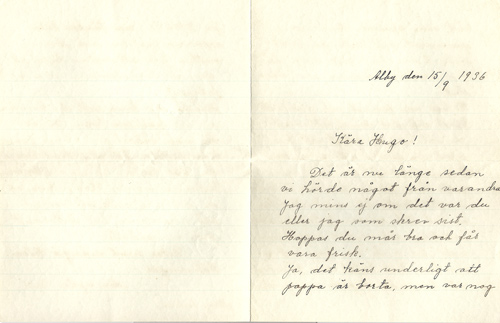 Alby den 15/9 1936
Kära Hugo!
Det är nu länge sedan
vi hörde något från varandra
Jag mins ej om det var du
eller jag som skrev sist.
Hoppas du mår bra och får
vara frisk.
Ja, det käns underligt att
pappa är borta, men var nog